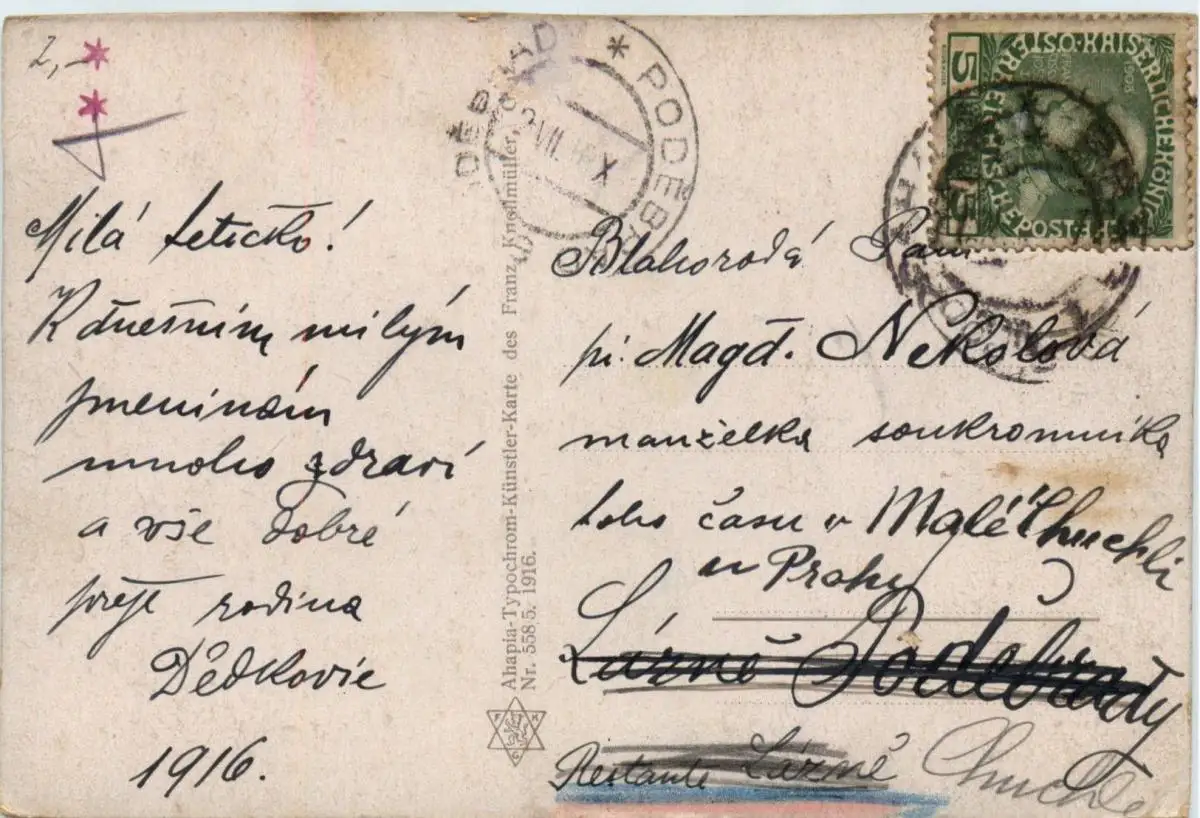 2,-
Milá tetičko!
K dnešním milým
jmeninám
mnoho zdraví
a vše dobré
přeje rodina
Dědkovic
1916.
Ahapia-Typochrom-Künstler-Karte des Franz Knollmüller,
Nr. 558 5. 1916.
PODĚBRADY
VII. X
5
KAISERLICHE KÖNI
POST
Blahorodá Paní
pí. Magd. Nekolová
manželka soukromníka
toho času v Malé Chuchli
u Prahy
Lázně Poděbrady
Restante Lázně Chuchle